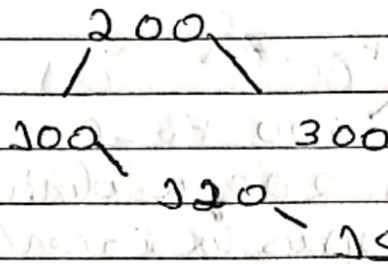 200
100 300
120